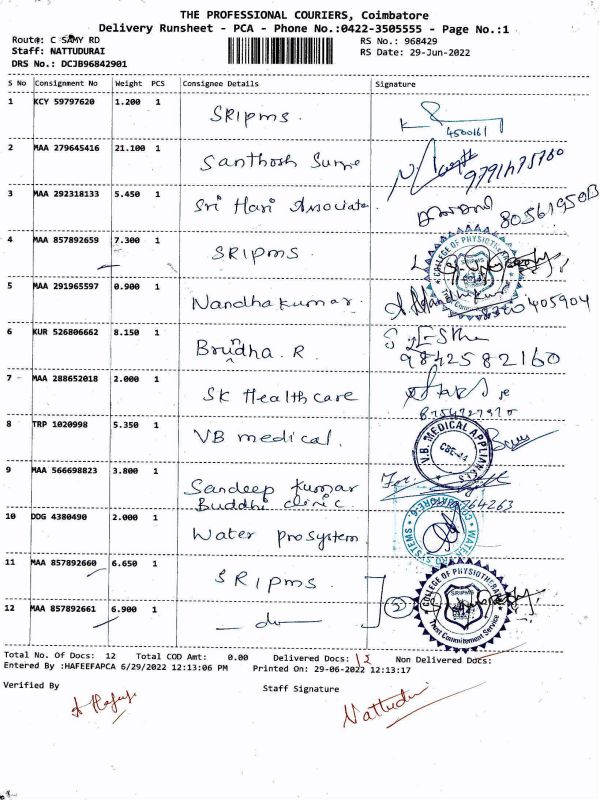 THE PROFESSIONAL COURIERS, Coimbatore
Delivery Runsheet - PCA - Phone No.:0422-3505555 - Page No.:1
Route#: C SAMY RD RS No.: 968429
Staff: NATTUDURAI RS Date: 29-Jun-2022
DRS No.: DCJB96842901
S No Consignment No Weight PCS Consignee Details Signature
1 KCY 59797620 1.200 1 SRIPMS.
2 MAA 279645416 21.100 1 Santhosh
3 MAA 292318133 5.450 1 Sri Hari Associate.
4 MAA 857892659 7.300 1 SRIPMS. COLLEGE OF PHYSIOTHERAPY
5 MAA 291965597 0.900 1 Nandhakumar
6 KUR 526806662 8.150 1 Brundha. R 9842582160
7 MAA 288652018 2.000 1 SK Healthcare
8 TRP 1020998 5.350 1 VB medical. V.B. MEDICAL APPLIANCES
9 MAA 566698823 3.800 1 Sandeep Kumar For:
Buddhi clinic
10 DDG 4380490 2.000 1 Water prosystem WATER SYSTEMS COIMBATORE-6
11 MAA 857892660 6.650 1 SRIPMS COLLEGE OF PHYSIOTHERAPY
SRIPMS
12 MAA 857892661 6.900 1 — do — Trust Commitment Service
Total No. Of Docs: 12 Total COD Amt: 0.00 Delivered Docs: 12 Non Delivered Docs:
Entered By :HAFEEFAPCA 6/29/2022 12:13:06 PM Printed On: 29-06-2022 12:13:17
Verified By Staff Signature
Nattudurai